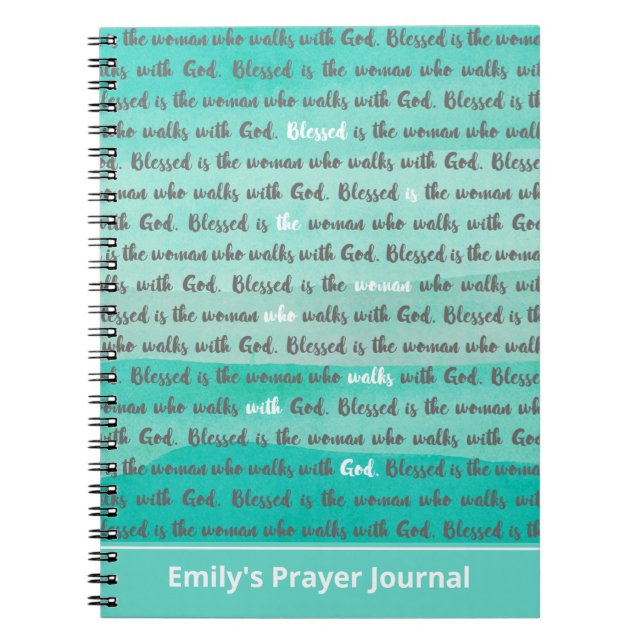 is the woman who walks with God. Blessed is the woma
lks with God. Blessed is the woman who walks wit
lessed is the woman who walks with God. Blessed is
who walks with God. Blessed is the woman who walk
God. Blessed is the woman who walks with God. Blesse
oman who walks with God. Blessed is the woman who
with God. Blessed is the woman who walks with God
is the woman who walks with God. Blessed is the woma
lks with God. Blessed is the woman who walks wit
lessed is the woman who walks with God. Blessed is
who walks with God. Blessed is the woman who walk
od. Blessed is the woman who walks with God. Blesse
oman who walks with God. Blessed is the woman wh
with God. Blessed is the woman who walks with God
is the woman who walks with God. Blessed is the woma
lks with God. Blessed is the woman who walks wit
lessed is the woman who walks with God. Blessed is
Emily's Prayer Journal